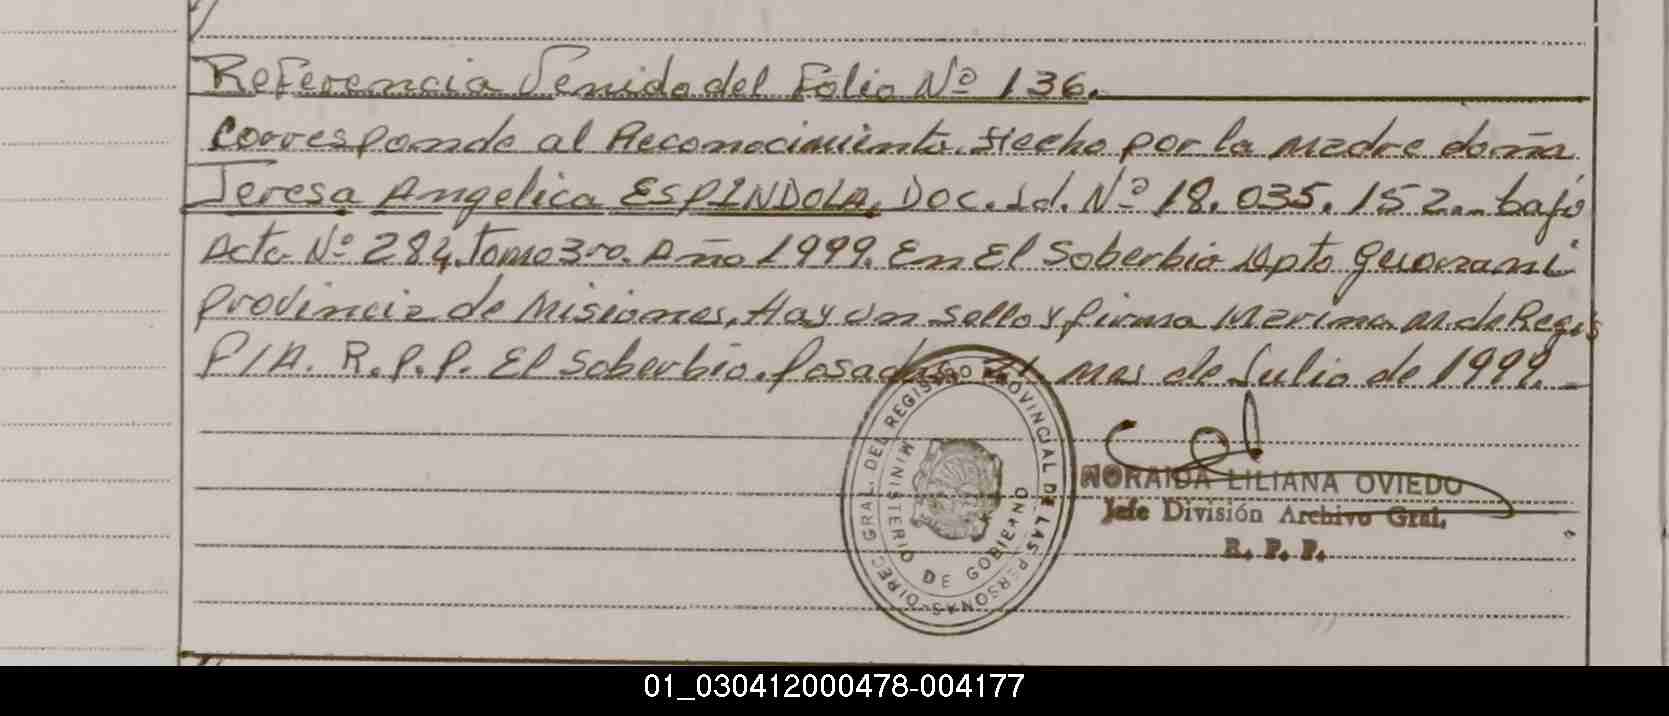 Referencia Venida del Folio Nº 136.
Corresponde al Reconocimiento Hecho por la Madre doña
Teresa Angelica ESPINDOLA, Doc. Id. Nº 18.035.152.- bajo
Acta Nº 284, Tomo 3ro. Año 1999. En El Soberbio Dpto Guarani
Provincia de Misiones, Hay un sello y firma Marina M. de Regis
P/A. R.P.P. El Soberbio. Posadas 21 Mes de Julio de 1999.-
DIREC. GRAL. DEL REGISTRO PROVINCIAL DE LAS PERSONAS
MINISTERIO DE GOBIERNO
NORAIDA LILIANA OVIEDO
Jefe División Archivo Gral.
R. P. P.
01_030412000478-004177